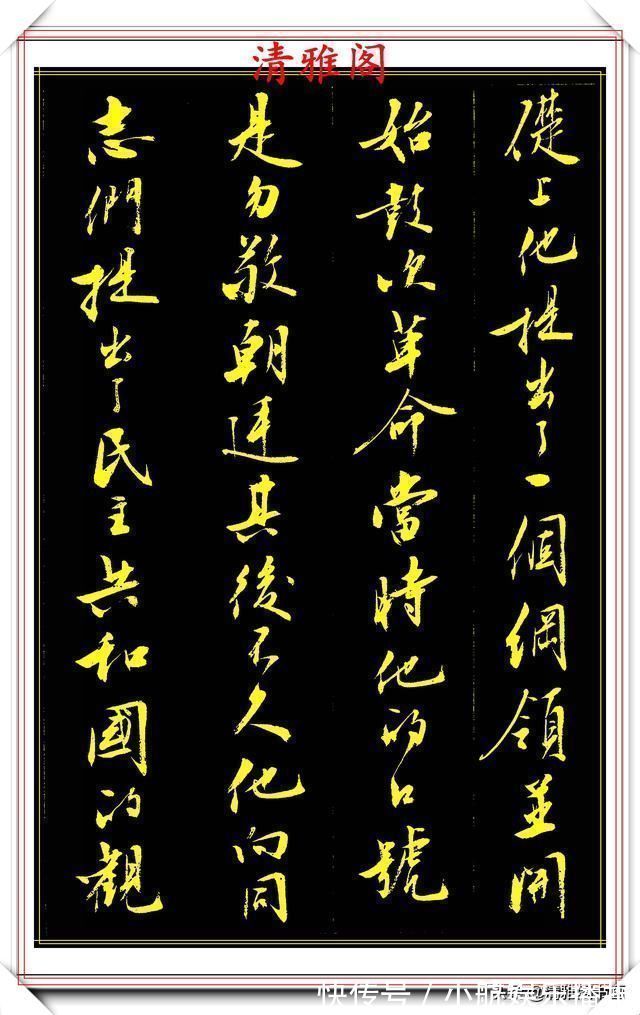 清雅阁
礎上他提出了一個綱領並開
始鼓吹革命當時他的口號
是勿敬朝廷其後不久他向同
志們提出了民主共和國的觀
快传号 / 小
@清雅